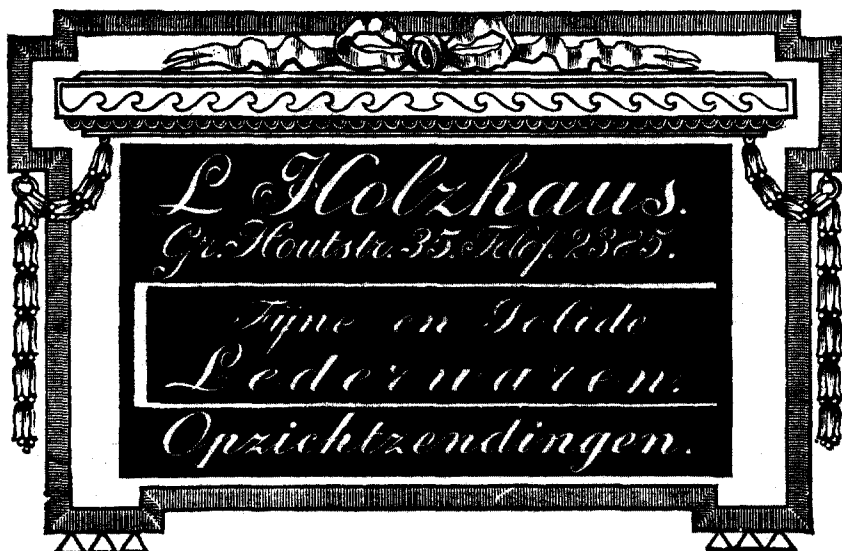 L Holzhaus.
Gr. Houtstr. 35. Telef. 2385.
Fijne en Solide
Lederwaren.
Opzichtzendingen.